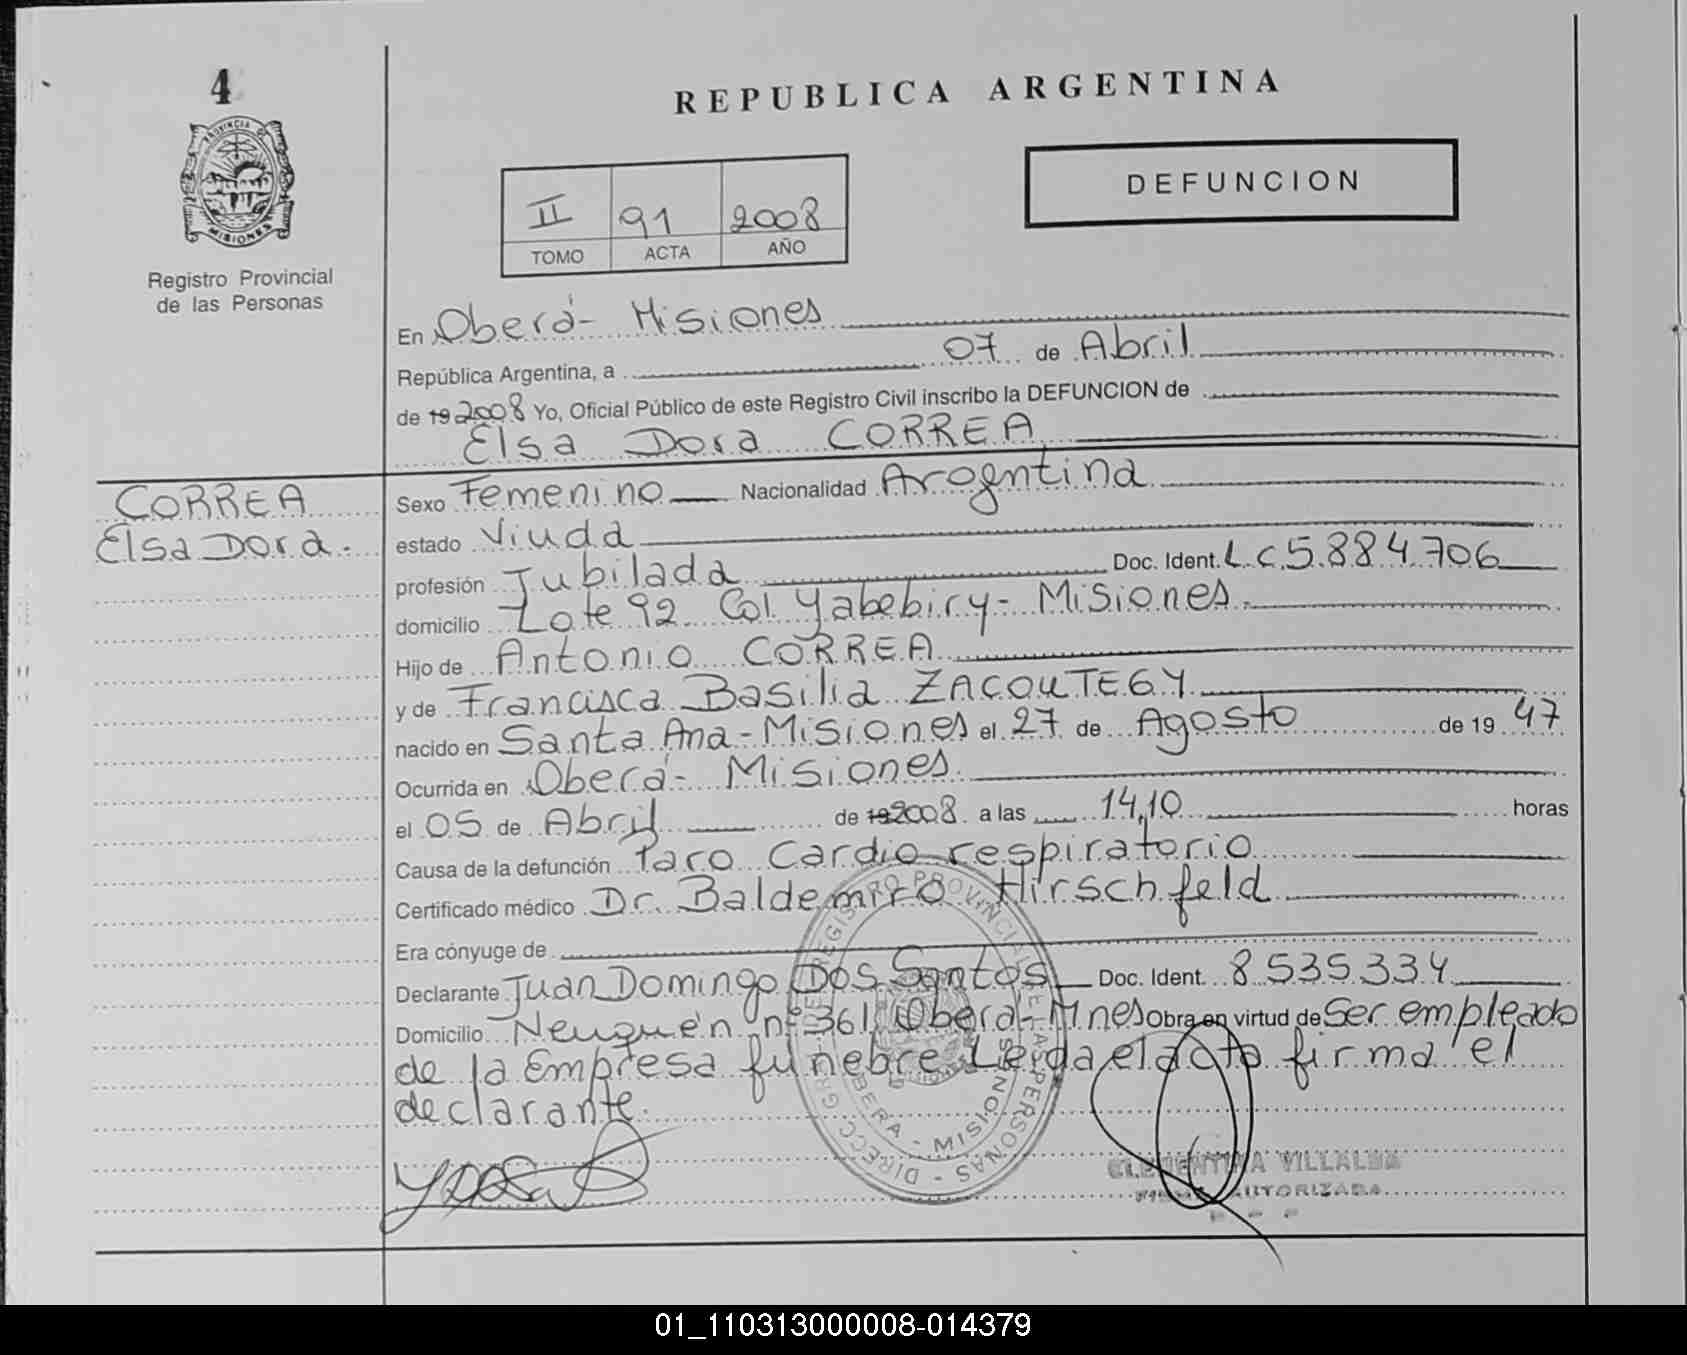 4
REPUBLICA ARGENTINA
PROVINCIA DE
MISIONES
Registro Provincial
de las Personas
II 91 2008
TOMO ACTA AÑO
DEFUNCION
En Oberá - Misiones
República Argentina, a 07 de Abril
de 19 2008 Yo, Oficial Público de este Registro Civil inscribo la DEFUNCION de
Elsa Dora CORREA
CORREA
Elsa Dora.
Sexo Femenino Nacionalidad Argentina
estado Viuda
profesión Jubilada Doc. Ident. L.C 5.884.706
domicilio Lote 92 Col. Yabebiry - Misiones.
Hijo de Antonio CORREA
y de Francisca Basilia ZACOUTEGY
nacido en Santa Ana - Misiones el 27 de Agosto de 19 47
Ocurrida en Oberá - Misiones
el 05 de Abril de 19 2008 a las 14,10 horas
Causa de la defunción Paro Cardio respiratorio
Certificado médico Dr. Baldemiro Hirschfeld
Era cónyuge de
Declarante Juan Domingo Dos Santos Doc. Ident. 8.535.334
Domicilio Neuquén nº 361 Oberá - Mnes Obra en virtud de Ser empleado
de la Empresa fúnebre Lerda el acto firma el
declarante.
REGISTRO PROVINCIAL DE LAS PERSONAS - DIRECC. GRAL.
OBERA - MISIONES
CLEMENTINA VILLALBA
FIRMA AUTORIZADA
01_110313000008-014379